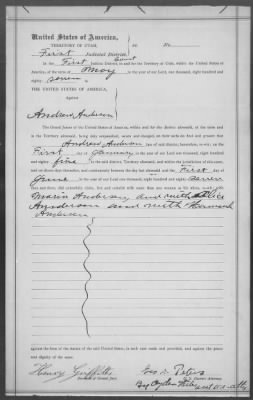 United States of America,
TERRITORY OF UTAH, ss. No.
First Judicial District.
In the First Judicial District Court in and for the Territory of Utah, within the United States of
America, of the term of May in the year of our Lord one thousand, eight hundred and
eighty seven
THE UNITED STATES OF AMERICA,
Against
Andrew Anderson
The Grand Jurors of the United States of America, within and for the district aforesaid, of the term and
in the Territory aforesaid, being duly empaneled, sworn and charged on their oaths do find and present that
Andrew Anderson late of said district, heretofore, to-wit: on the
First day of January in the year of our Lord one thousand, eight hundred
and eighty five in the said district, Territory aforesaid, and within the jurisdiction of this court,
and on divers days thereafter, and continuously between the day last aforesaid and the First day of
June in the year of our Lord one thousand, eight hundred and eighty seven
did then and there, unlawfully claim, live and cohabit with more than one woman as his wives, to-wit: with
Maria Anderson and with
Anderson and with
Anderson
against the form of the statute of the said United States, in such case made and provided, and against the peace
and dignity of the same.
Henry Griffith Geo S. Peters
Foreman of Grand Jury. U. S. District Attorney.
By Ogden Hiles asst U.S. atty